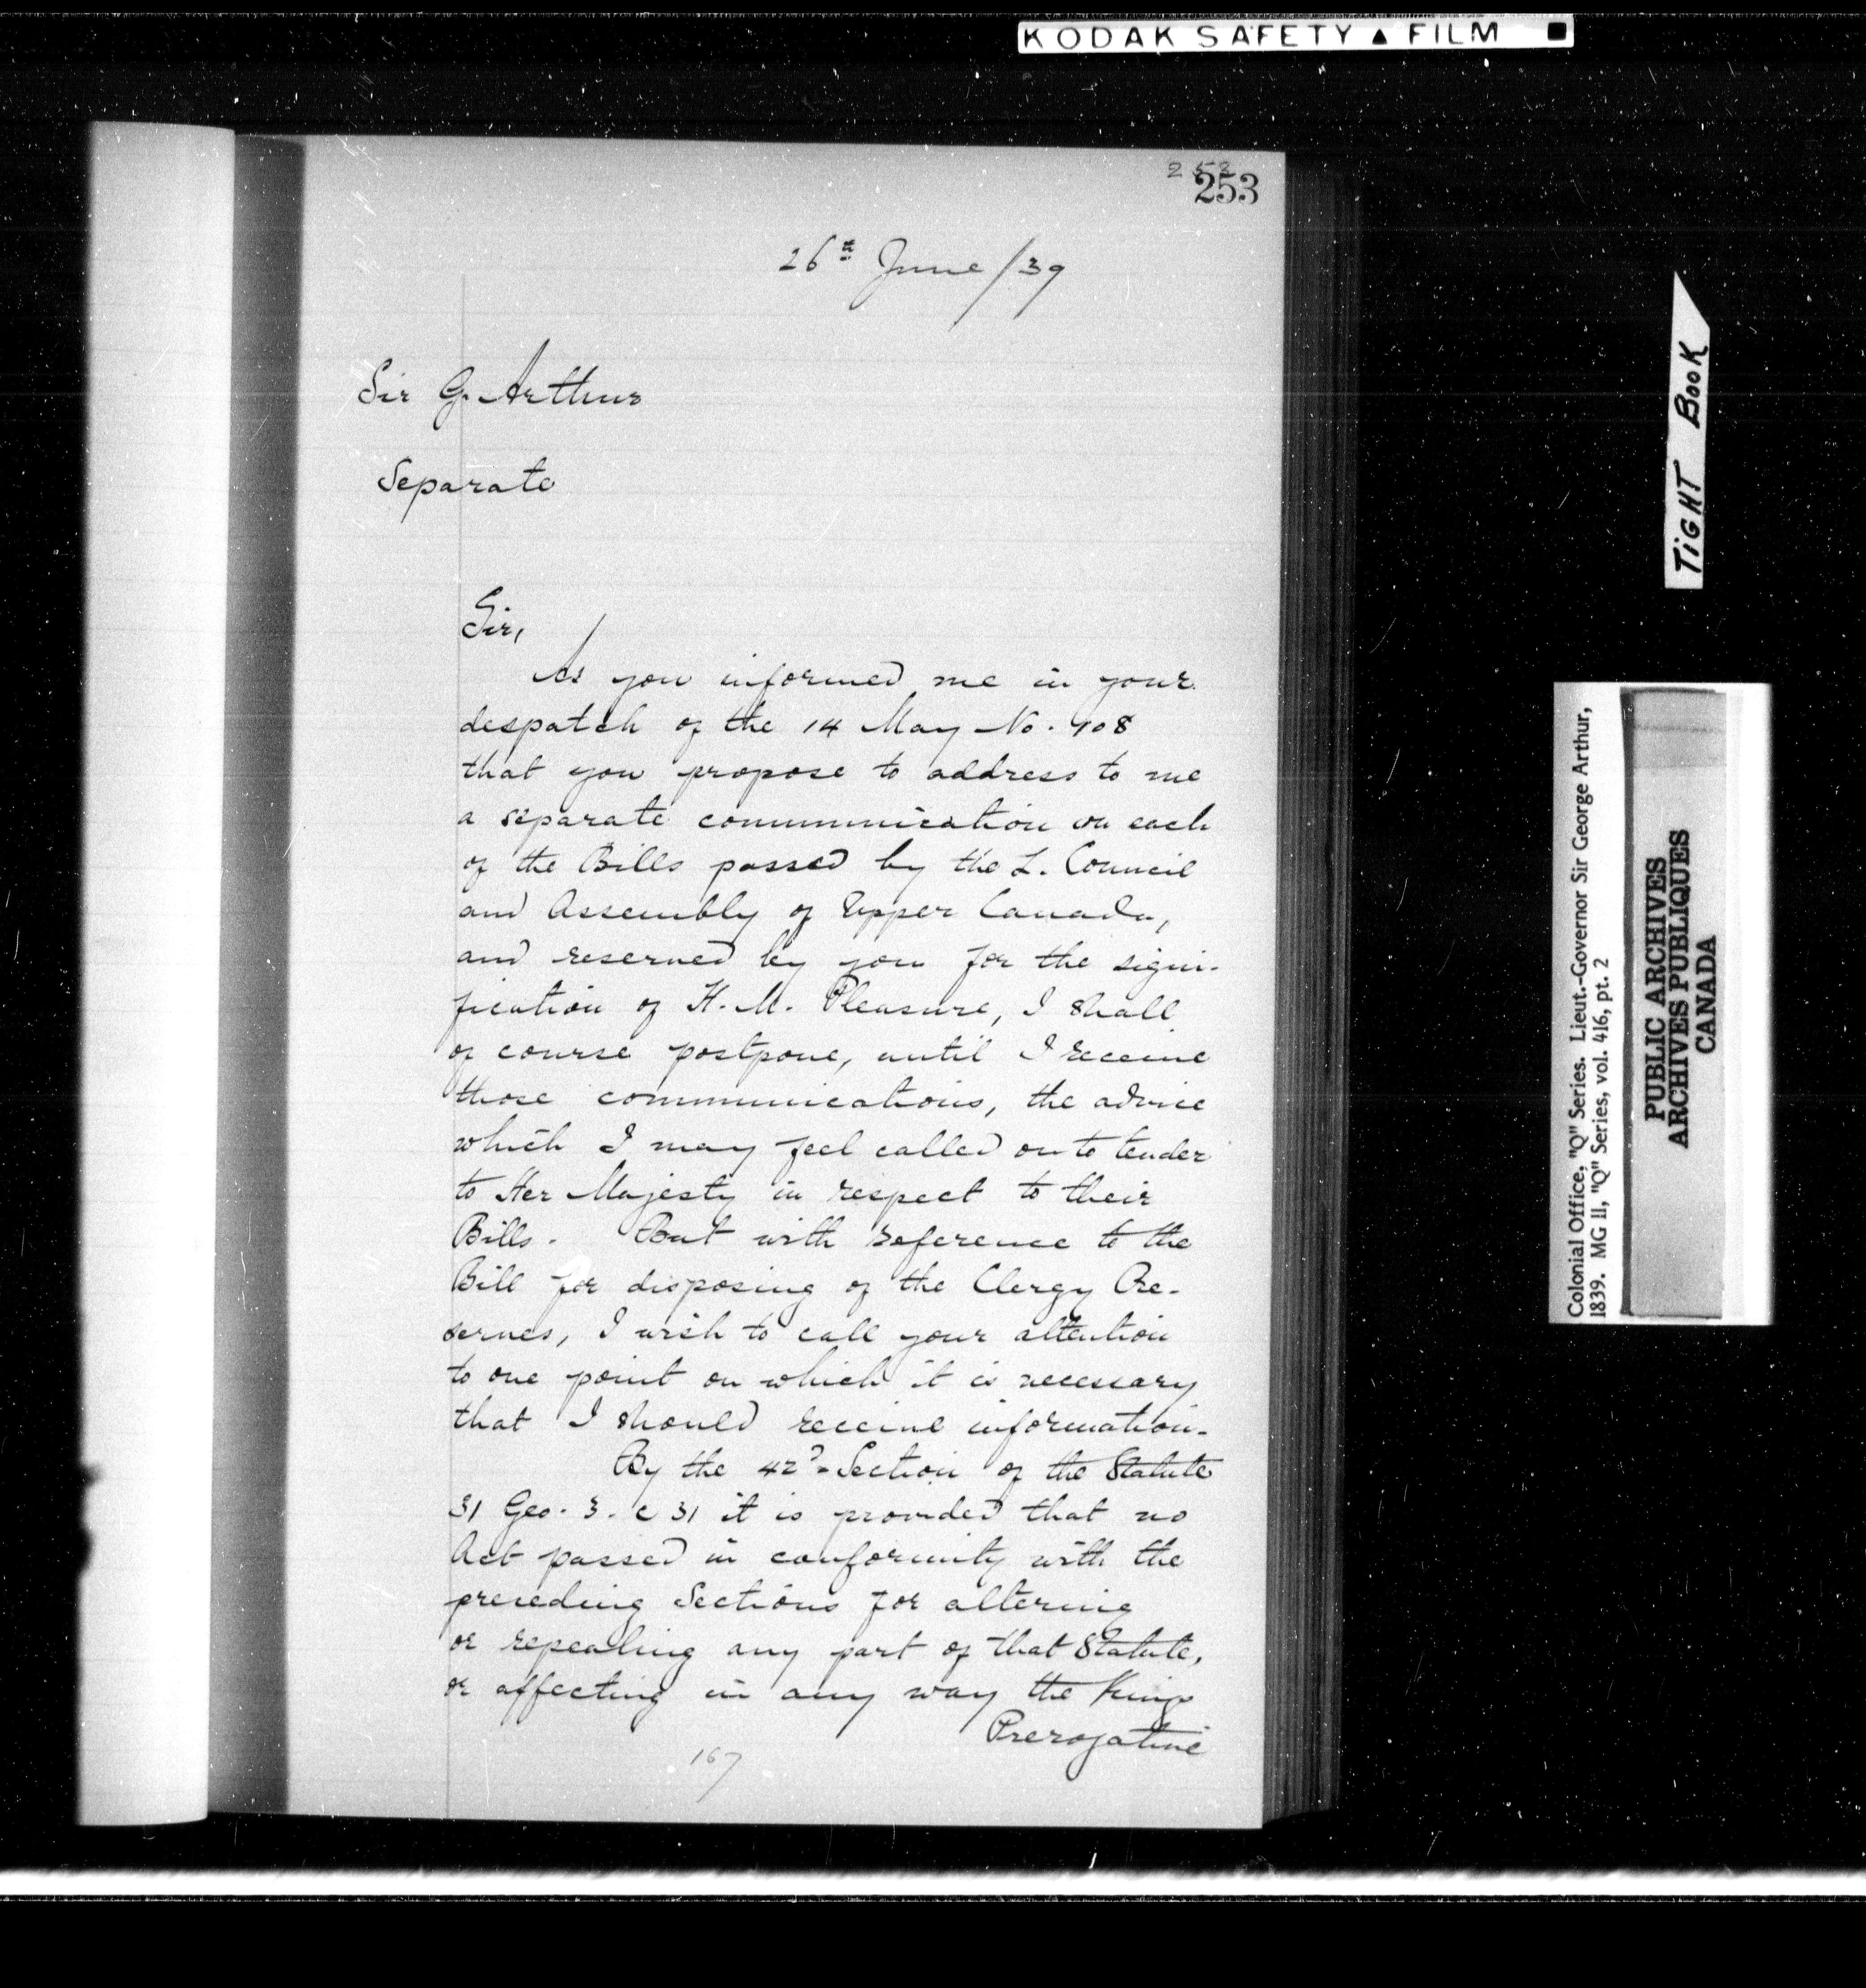 KODAK SAFETY ▲ FILM
253
253
26th June/39
Sir G. Arthur
Separate
Sir,
As you informed me in your
despatch of the 14 May No. 108
that you propose to address to me
a separate communication on each
of the Bills passed by the L. Council
and Assembly of Upper Canada,
and reserved by you for the signi-
fication of H. M. Pleasure, I shall
of course postpone, until I receive
those communications, the advice
which I may feel called on to tender
to Her Majesty in respect to their
Bills. But with reference to the
Bill for disposing of the Clergy Re-
serves, I wish to call your attention
to one point on which it is necessary
that I should receive information.
By the 42d Section of the Statute
31 Geo. 3. c 31 it is provided that no
Act passed in conformity with the
preceding Sections for altering
or repealing any part of that Statute,
or affecting in any way the Kings
Prerogative
167
TIGHT BOOK
Colonial Office, "Q" Series. Lieut.-Governor Sir George Arthur,
1839. MG 11, "Q" Series, vol. 416, pt. 2
PUBLIC ARCHIVES
ARCHIVES PUBLIQUES
CANADA